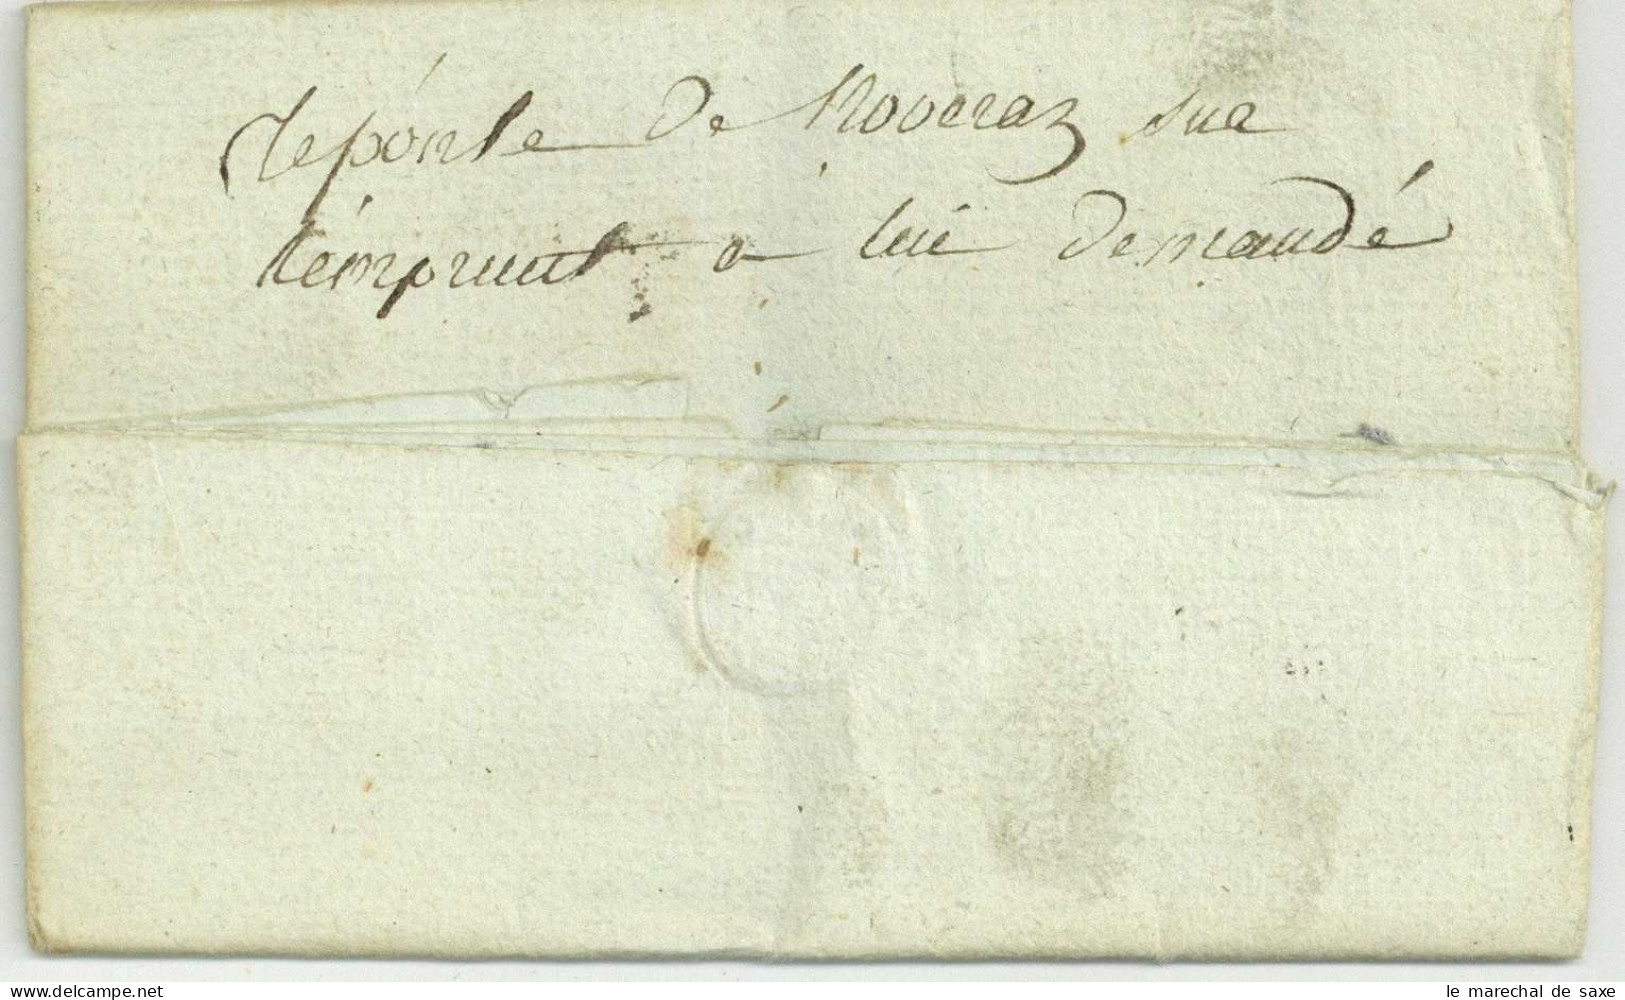 réponse de Rooveraz sur
l'emprunt a lui demandé
www.delcampe.net
le marechal de saxe